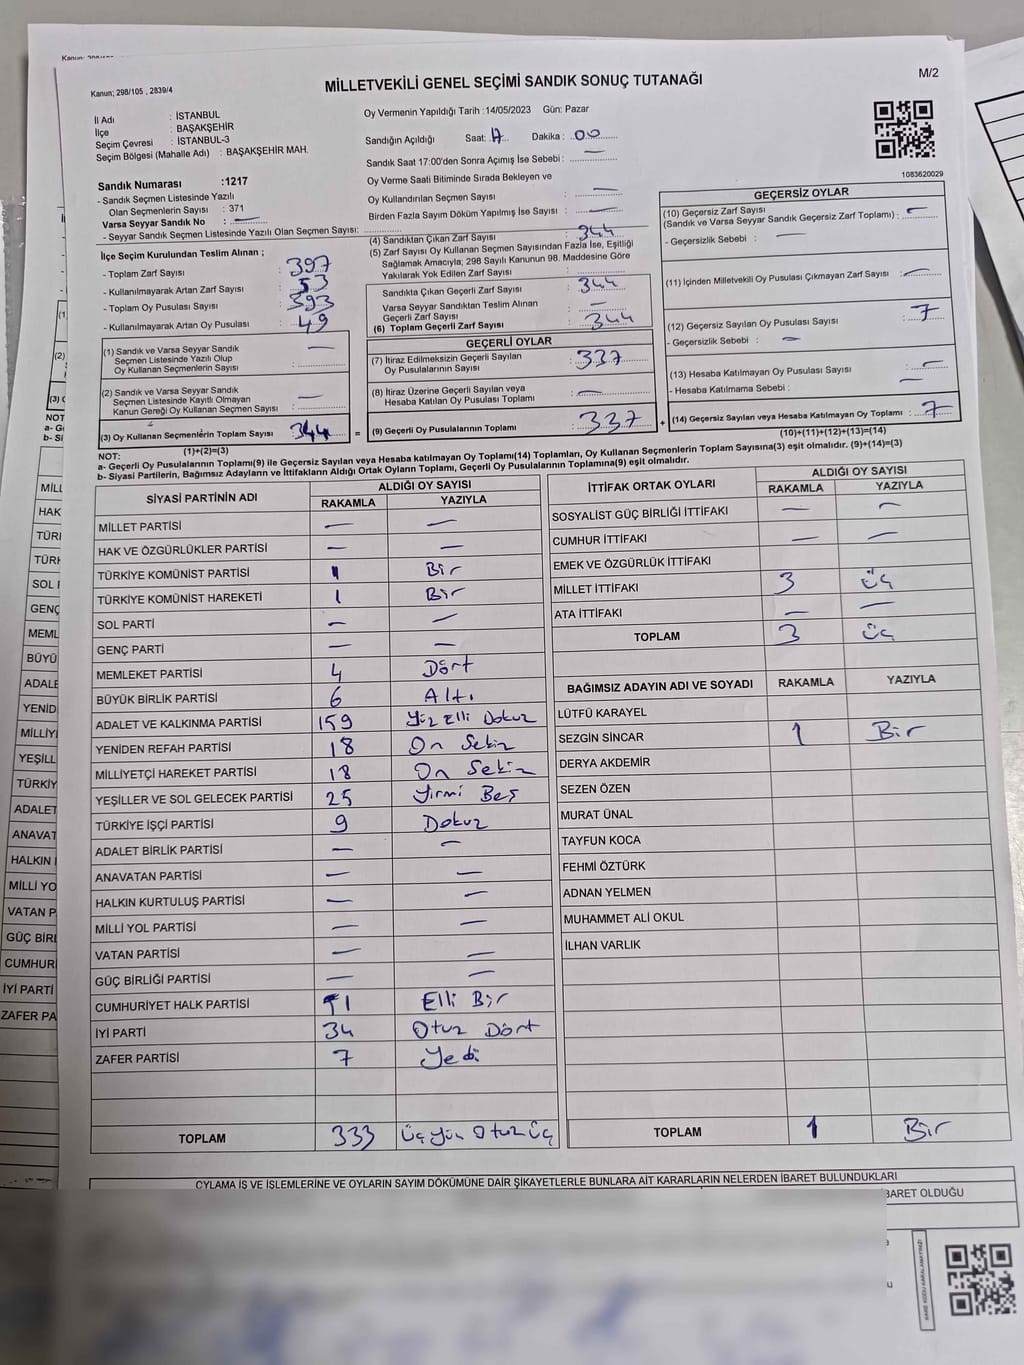 Kanun; 298/105 , 2839/4
MİLLETVEKİLİ GENEL SEÇİMİ SANDIK SONUÇ TUTANAĞI
M/2
İl Adı : İSTANBUL
İlçe : BAŞAKŞEHİR
Seçim Çevresi : İSTANBUL-3
Seçim Bölgesi (Mahalle Adı) : BAŞAKŞEHİR MAH.
Oy Vermenin Yapıldığı Tarih :14/05/2023 Gün: Pazar
Sandığın Açıldığı Saat: Dakika : 00
Sandık Saat 17:00'den Sonra Açımış İse Sebebi : —
Oy Verme Saati Bitiminde Sırada Bekleyen ve
Oy Kullandırılan Seçmen Sayısı : —
Birden Fazla Sayım Döküm Yapılmış İse Sayısı : —
1083620029
Sandık Numarası :1217
- Sandık Seçmen Listesinde Yazılı
Olan Seçmenlerin Sayısı : 371
Varsa Seyyar Sandık No : —
- Seyyar Sandık Seçmen Listesinde Yazılı Olan Seçmen Sayısı:
İlçe Seçim Kurulundan Teslim Alınan ;
- Toplam Zarf Sayısı : 397
- Kullanılmayarak Artan Zarf Sayısı : 53
- Toplam Oy Pusulası Sayısı : 393
- Kullanılmayarak Artan Oy Pusulası : 49
(1) Sandık ve Varsa Seyyar Sandık
Seçmen Listesinde Yazılı Olup
Oy Kullanan Seçmenlerin Sayısı : —
(2) Sandık ve Varsa Seyyar Sandık
Seçmen Listesinde Kayıtlı Olmayan
Kanun Gereği Oy Kullanan Seçmen Sayısı : —
(3) Oy Kullanan Seçmenlerin Toplam Sayısı : 344
(1)+(2)=(3)
(4) Sandıktan Çıkan Zarf Sayısı : 344
(5) Zarf Sayısı Oy Kullanan Seçmen Sayısından Fazla İse, Eşitliği
Sağlamak Amacıyla, 298 Sayılı Kanunun 98. Maddesine Göre
Yakılarak Yok Edilen Zarf Sayısı :
Sandıkta Çıkan Geçerli Zarf Sayısı : 344
Varsa Seyyar Sandıktan Teslim Alınan
Geçerli Zarf Sayısı : —
(6) Toplam Geçerli Zarf Sayısı : 344
GEÇERLİ OYLAR
(7) İtiraz Edilmeksizin Geçerli Sayılan
Oy Pusulalarının Sayısı : 337
(8) İtiraz Üzerine Geçerli Sayılan veya
Hesaba Katılan Oy Pusulası Toplamı : —
= (9) Geçerli Oy Pusulalarının Toplamı : 337
GEÇERSİZ OYLAR
(10) Geçersiz Zarf Sayısı
(Sandık ve Varsa Seyyar Sandık Geçersiz Zarf Toplamı) : —
- Geçersizlik Sebebi : —
(11) İçinden Milletvekili Oy Pusulası Çıkmayan Zarf Sayısı : —
(12) Geçersiz Sayılan Oy Pusulası Sayısı : 7
- Geçersizlik Sebebi : —
(13) Hesaba Katılmayan Oy Pusulası Sayısı : —
- Hesaba Katılmama Sebebi : —
+ (14) Geçersiz Sayılan veya Hesaba Katılmayan Oy Toplamı : 7
(10)+(11)+(12)+(13)=(14)
NOT:
a- Geçerli Oy Pusulalarının Toplamı(9) ile Geçersiz Sayılan veya Hesaba katılmayan Oy Toplamı(14) Toplamları, Oy Kullanan Seçmenlerin Toplam Sayısına(3) eşit olmalıdır. (9)+(14)=(3)
b- Siyasi Partilerin, Bağımsız Adayların ve İttifakların Aldığı Ortak Oyların Toplamı, Geçerli Oy Pusulalarının Toplamına(9) eşit olmalıdır.
SİYASİ PARTİNİN ADI ALDIĞI OY SAYISI
RAKAMLA YAZIYLA
MİLLET PARTİSİ — —
HAK VE ÖZGÜRLÜKLER PARTİSİ — —
TÜRKİYE KOMÜNİST PARTİSİ 1 Bir
TÜRKİYE KOMÜNİST HAREKETİ 1 Bir
SOL PARTİ — —
GENÇ PARTİ — —
MEMLEKET PARTİSİ 4 Dört
BÜYÜK BİRLİK PARTİSİ 6 Altı
ADALET VE KALKINMA PARTİSİ 159 Yüz Elli Dokuz
YENİDEN REFAH PARTİSİ 18 On Sekiz
MİLLİYETÇİ HAREKET PARTİSİ 18 On Sekiz
YEŞİLLER VE SOL GELECEK PARTİSİ 25 Yirmi Beş
TÜRKİYE İŞÇİ PARTİSİ 9 Dokuz
ADALET BİRLİK PARTİSİ — —
ANAVATAN PARTİSİ — —
HALKIN KURTULUŞ PARTİSİ — —
MİLLİ YOL PARTİSİ — —
VATAN PARTİSİ — —
GÜÇ BİRLİĞİ PARTİSİ — —
CUMHURİYET HALK PARTİSİ 51 Elli Bir
İYİ PARTİ 34 Otuz Dört
ZAFER PARTİSİ 7 Yedi
TOPLAM 333 Üç Yüz Otuz Üç
İTTİFAK ORTAK OYLARI ALDIĞI OY SAYISI
RAKAMLA YAZIYLA
SOSYALİST GÜÇ BİRLİĞİ İTTİFAKI — —
CUMHUR İTTİFAKI — —
EMEK VE ÖZGÜRLÜK İTTİFAKI
MİLLET İTTİFAKI 3 Üç
ATA İTTİFAKI — —
TOPLAM 3 Üç
BAĞIMSIZ ADAYIN ADI VE SOYADI RAKAMLA YAZIYLA
LÜTFÜ KARAYEL
SEZGİN SİNCAR 1 Bir
DERYA AKDEMİR
SEZEN ÖZEN
MURAT ÜNAL
TAYFUN KOCA
FEHMİ ÖZTÜRK
ADNAN YELMEN
MUHAMMET ALİ OKUL
İLHAN VARLIK
TOPLAM 1 Bir
OYLAMA İŞ VE İŞLEMLERİNE VE OYLARIN SAYIM DÖKÜMÜNE DAİR ŞİKAYETLERLE BUNLARA AİT KARARLARIN NELERDEN İBARET BULUNDUKLARI
BARET OLDUĞU